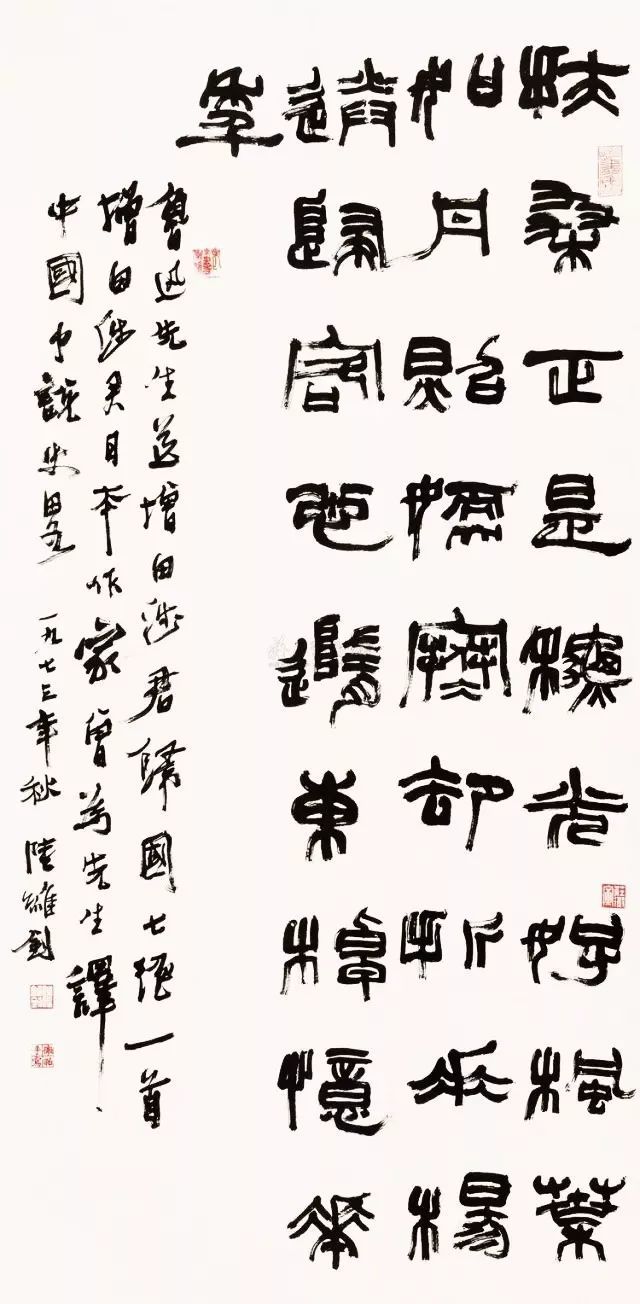 扶桑正是龝光好楓葉
如丹照嫩寒却折垂楊
送歸客心隨東棹憶華
年
魯迅先生送增田涉君歸國七絕一首
增田涉君日本作家曾為先生譯
中國小說史畧 一九七三年秋 陸維釗